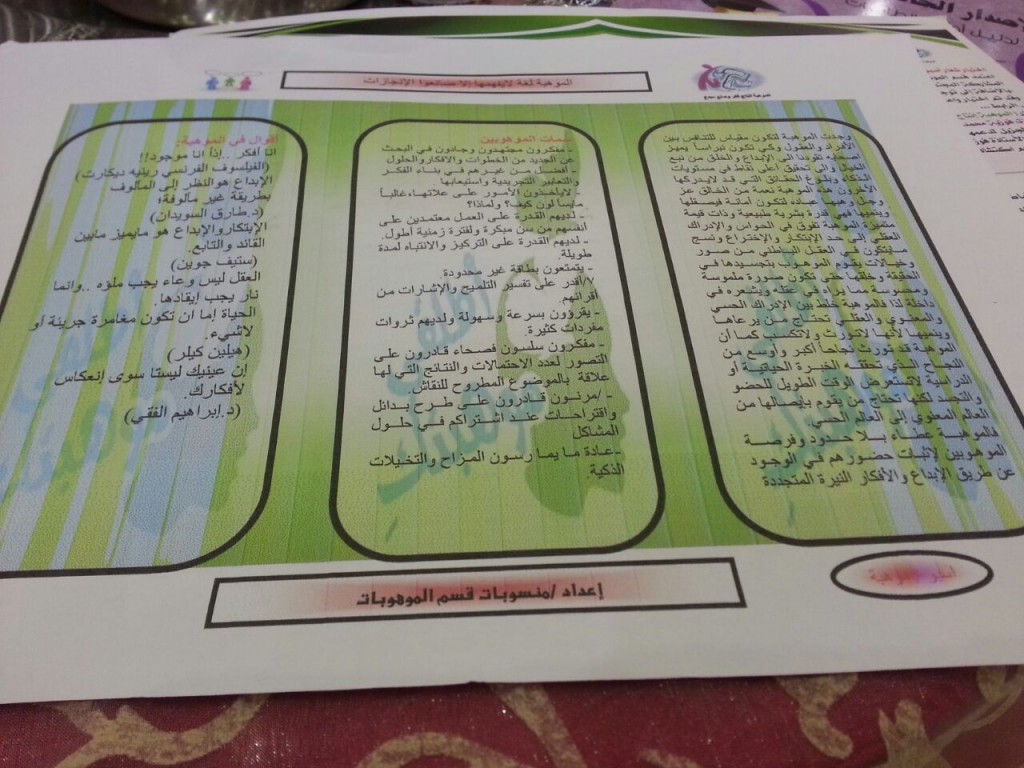 الموهبة لغة لايفهمها إلا صانعوا الإنجازات
وجدت الموهبة لتكون مقياس للتنافس بين
الأفراد والعقول وكي تكون نبراساً يميز
أصحابه تقودنا الى الإبداع والخلق من نبع
الخيال والى تحقيق أعلى نقاط في مستويات
الذكاء وبلوغ الحقائق التي قد لايدركها
الآخرون هذه الموهبة نعمة من الخالق عز
وجل وهبها عباده لتكون أمانة فيصقلها
وينميها فهي قدرة بشرية طبيعية وذات قيمة
متميزة الموهبة تفوق في الحواس والإدراك
العقلي إلى حد الإبتكار والإختراع ونسج
مايتكون في العقل الباطني من صور
وخيالات يقوم الموهوب بتجسيدها في
الحقيقة وخلقها حتى تكون صورة ملموسة
ومحسوسة مما يراه في عقله ويشعره في
داخله لذا فالموهبة خلط بين الإدراك الحسي
والمعنوي والعقلي تحتاج من يرعاها
وينميها لأنها لاتورث ولاتكتسب كما أن
الموهبة قد تورث نجاحاً أكبر وأوسع من
النجاح الذي تحققه الخبرة الحياتية أو
الدراسية لاتستعرض الوقت الطويل للحضو
والتصد لكنها تحتاج من يقوم بإيصالها من
العالم المعنوي إلى العالم الحي.
فالموهبة عطاء بلا حدود وفرصة
الموهوبين لإثبات حضورهم في الوجود
عن طريق الإبداع والأفكار النيرة المتجددة
سمات الموهوبين
- مفكرون مجتهدون وجادون في البحث
عن الجديد من الخطوات والافكار والحلول
- أفضل من غيرهم في بناء الفكر
والتعابير التجريدية واستيعابها
- لايأخذون الأمور على علاتها، غالباً
مايسألون كيف؟ ولماذا؟
- لديهم القدرة على العمل معتمدين على
أنفسهم من سن مبكرة ولفترة زمنية أطول.
- لديهم القدرة على التركيز والانتباه لمدة
طويلة.
- يتمتعون بطاقة غير محدودة.
٧/أقدر على تفسير التلميح والإشارات من
أقرانهم.
- يقرؤون بسرعة وسهولة ولديهم ثروات
مفردات كثيرة.
- مفكرون سلسون فصحاء قادرون على
التصور لعدد الاحتمالات والنتائج التي لها
علاقة بالموضوع المطروح للنقاش.
- /مرنون قادرون على طرح بدائل
واقتراحات عند اشتراكم في حلول
المشاكل
-عادة ما يما رسون المزاح والتخيلات
الذكية.
أقوال في الموهبة:
أنا أفكر ..إذاً أنا موجود!!
(الفيلسوف الفرنسي رينيه ديكارت)
الإبداع هو النظر إلى المألوف
بطريقة غير مألوفة؛
(د.طارق السويدان)
الإبتكار والإبداع هو مايميز مابين
القائد والتابع.
(ستيف جوبن)
العقل ليس وعاء يجب ملؤه ..وانما
نار يجب إيقادها.
الحياة إما ان تكون مغامرة جريئة أو
لاشيء.
(هيلين كيلر)
إن عينيك ليستا سوى إنعكاس
لأفكارك.
(د.إبراهيم الفقي)
إعداد /منسوبات قسم الموهوبات